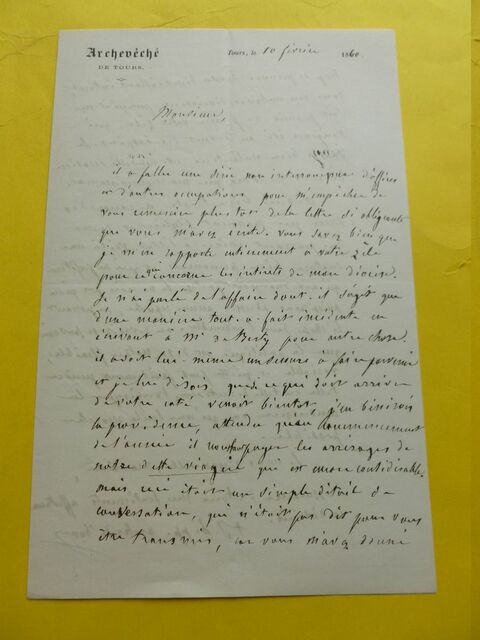 Archevêché
DE TOURS.
Tours, le 10 février 1860
Monsieur,
il a fallu une série non interrompue d'affaires
et d'autres occupations pour m'empêcher de
vous remercier plus tôt de la lettre si obligeante
que vous m'avez écrite. vous savez bien que
je m'en rapporte entièrement à votre zèle
pour ce qui concerne les intérêts de mon diocèse.
Je n'ai parlé de l'affaire dont il s'agit que
d'une manière tout-à-fait incidente en
écrivant à Mr de pour autre chose.
il avait lui-même un secours à faire parvenir
et je lui disais que ce qui doit arriver
de votre côté venoit bientôt, j'en bénirois
la providence, attendu qu'au commencement
de l'année il nous faut payer les arrérages de
notre dette viagère qui est encore considérable.
mais ceci était un simple détail de
conversation, qui n'était pas dit pour vous
être transmis, car vous m'avez donné